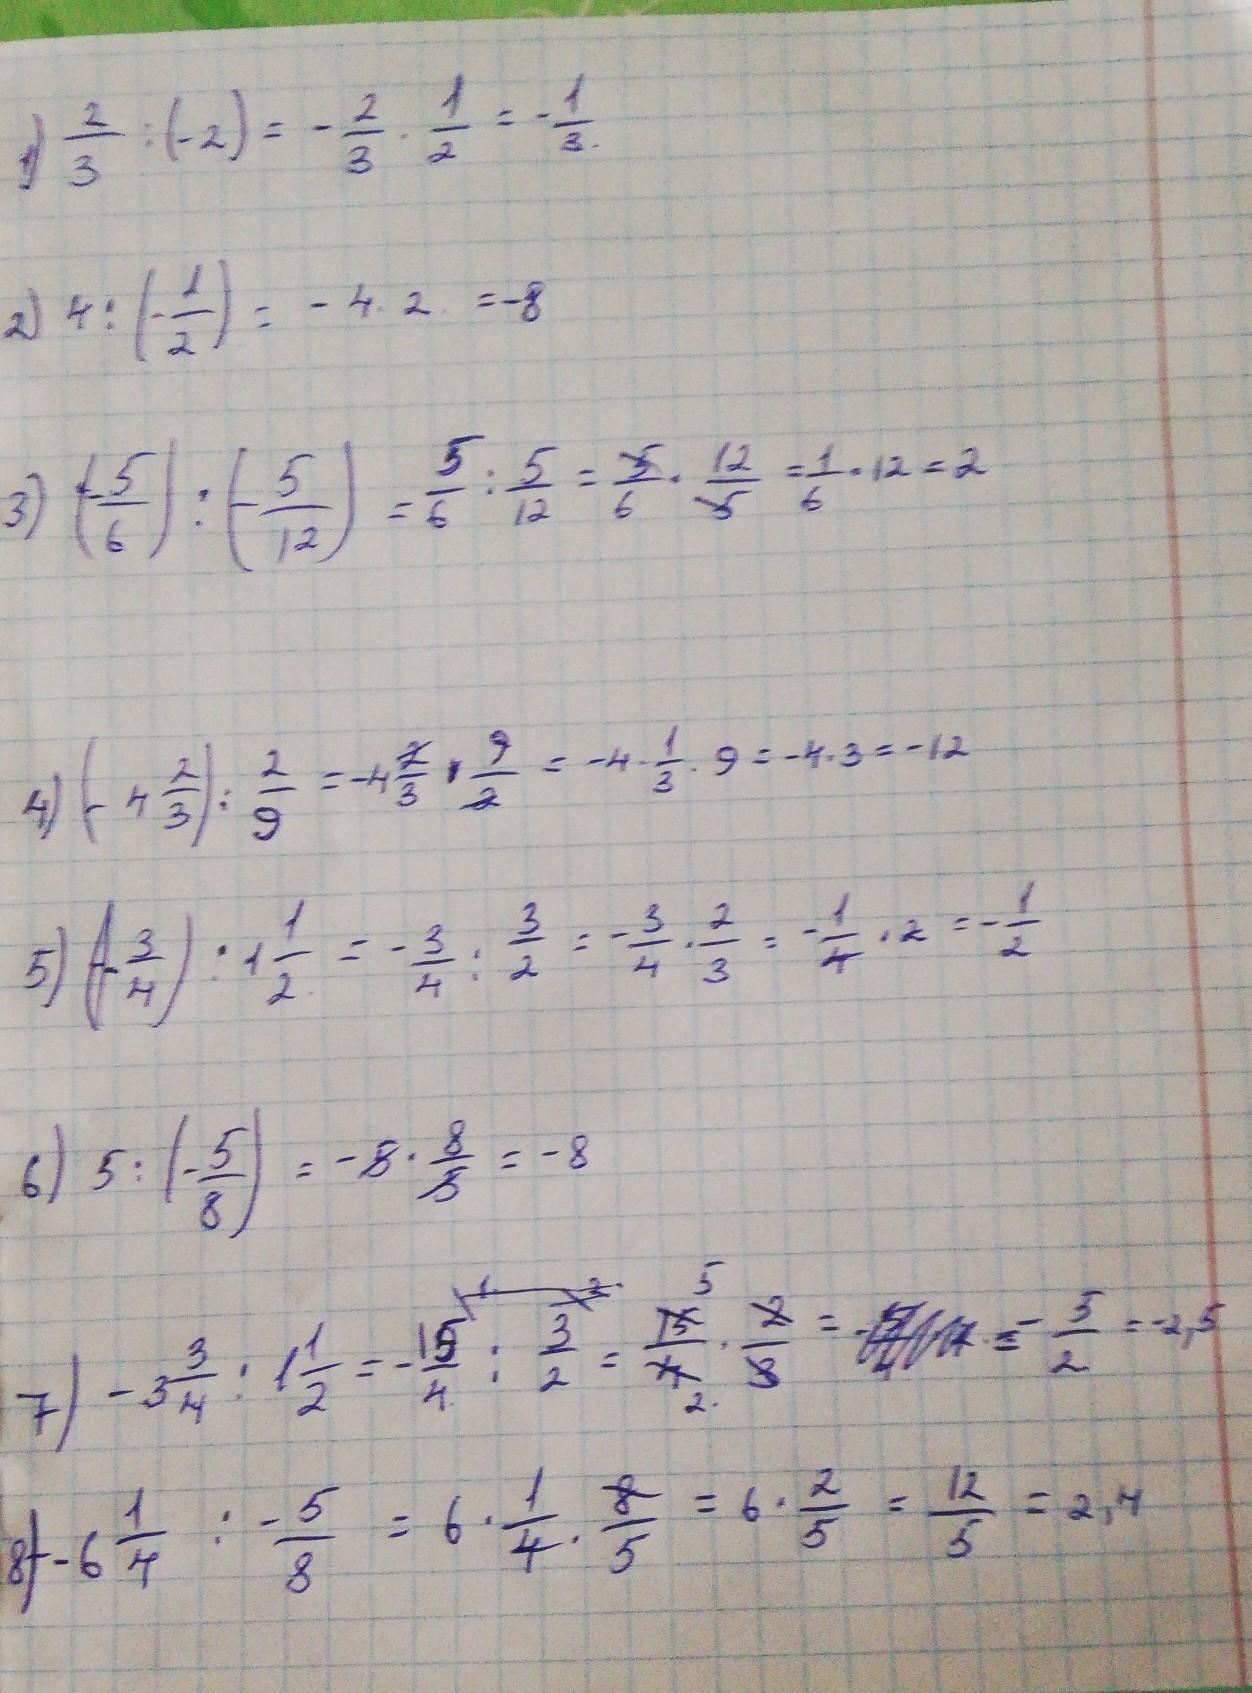 1) 2/3 : (-2) = - 2/3 · 1/2 = - 1/3.
2) 4 : (- 1/2) = - 4 · 2 = -8
3) (- 5/6) : (- 5/12) = 5/6 : 5/12 = 5/6 · 12/5 = 1/6 · 12 = 2
4) (- 4 2/3) : 2/9 = -4 2/3 · 9/2 = -4 · 1/3 · 9 = -4 · 3 = -12
5) (- 3/4) : 1 1/2 = - 3/4 : 3/2 = - 3/4 · 2/3 = - 1/4 · 2 = - 1/2
6) 5 : (- 5/8) = -5 · 8/5 = -8
7) - 3 3/4 : 1 1/2 = - 15/4 : 3/2 = 15/4 · 2/3 = = - 5/2 = -2,5
8) -6 1/4 : - 5/8 = 6 · 1/4 · 8/5 = 6 · 2/5 = 12/5 = 2,4